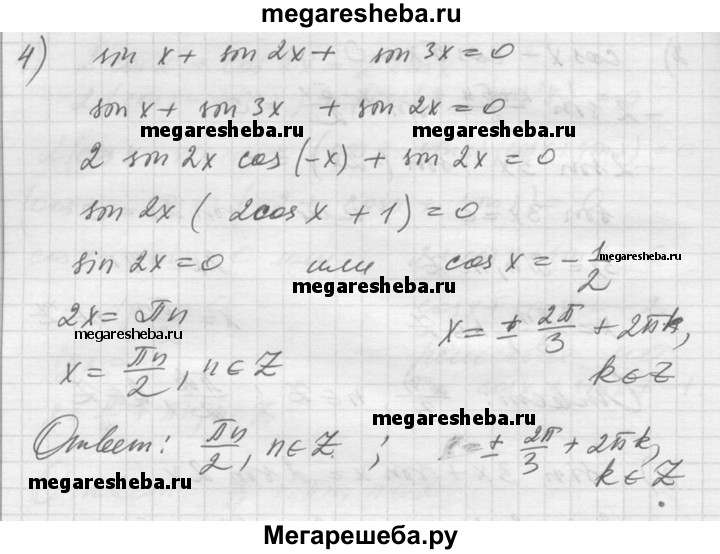 megaresheba.ru
4) sin x + sin 2x + sin 3x = 0
sin x + sin 3x + sin 2x = 0
megaresheba.ru megaresheba.ru
2 sin 2x cos(-x) + sin 2x = 0
sin 2x ( 2cos x + 1) = 0
sin 2x = 0 или cos x = -1/2
megaresheba.ru
megaresheba.ru
2x = πn
megaresheba.ru
x = ± 2π/3 + 2πk,
x = πn/2, n∈Z k∈Z
megaresheba.ru
Ответ: πn/2, n∈Z ; x = ± 2π/3 + 2πk,
k∈Z.
megaresheba.ru megaresheba.ru
Мегарешеба.ру